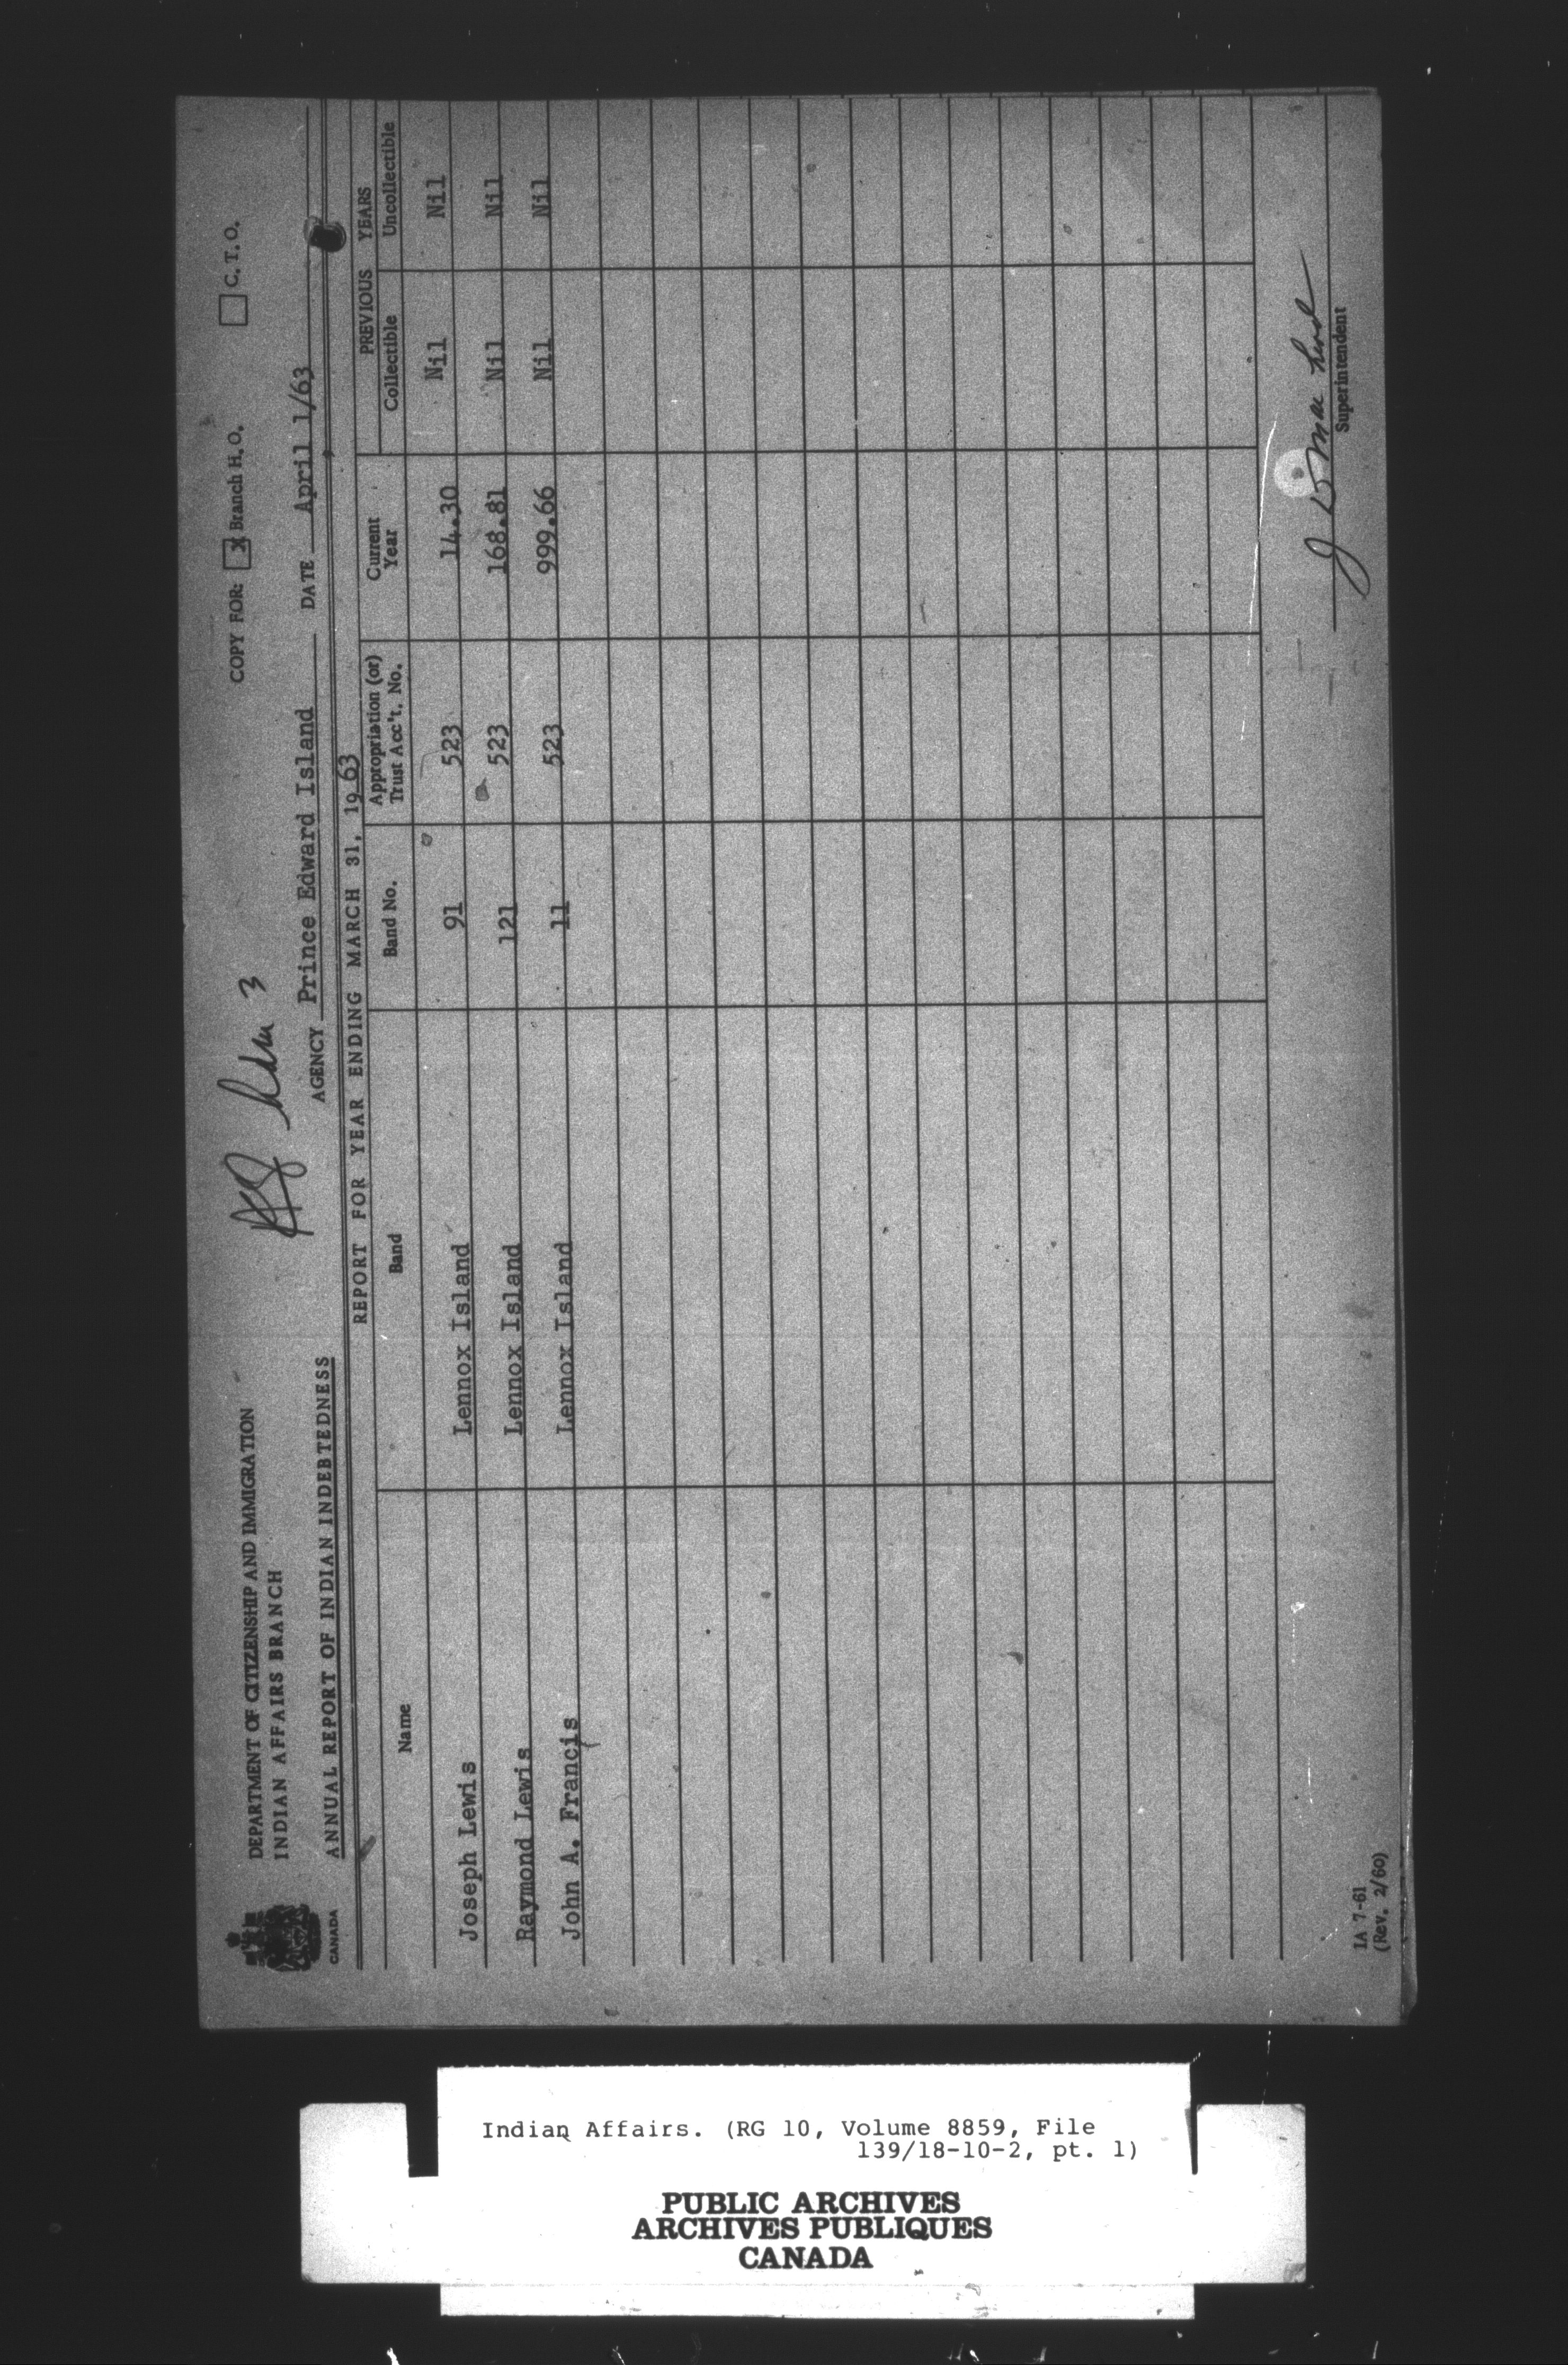 COPY FOR: [x] Branch H.O. [ ] C. T. O.
DEPARTMENT OF CITIZENSHIP AND IMMIGRATION
INDIAN AFFAIRS BRANCH
CANADA
AGENCY Prince Edward Island DATE April 1/63
ANNUAL REPORT OF INDIAN INDEBTEDNESS
REPORT FOR YEAR ENDING MARCH 31, 1963
Name Band Band No. Appropriation (or) Trust Acc't. No. Current Year PREVIOUS YEARS Collectible Uncollectible
Joseph Lewis Lennox Island 91 523 14.30 Nil Nil
Raymond Lewis Lennox Island 121 523 168.81 Nil Nil
John A. Francis Lennox Island 11 523 999.66 Nil Nil
Superintendent
IA 7-61
(Rev. 2/60)
Indian Affairs. (RG 10, Volume 8859, File
139/18-10-2, pt. 1)
PUBLIC ARCHIVES
ARCHIVES PUBLIQUES
CANADA